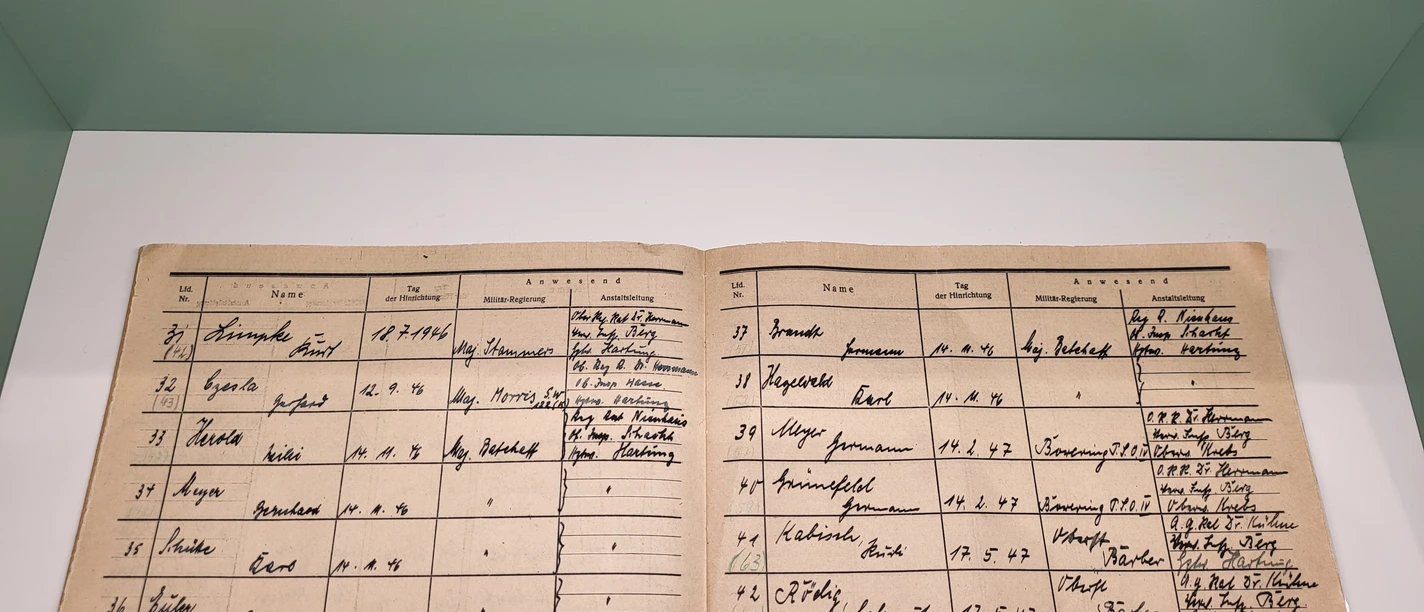 Lfd.
Nr.
Name
Tag
der Hinrichtung
Anwesend
Militär-Regierung
Anstaltsleitung
31
Kurt
18.7.1946
Maj. Stammers
Ober Reg. Rat Dr. Herrmann
Berg
Hartung
32
(43)
Czesla
Gerhard
12. 9. 46
Maj. Morris
Ob. Reg. R. Dr. Herrmann
Ob. Insp. Hasse
Hptw. Hartung
33
Herold
Willi
14. 11. 46
Maj. Batchaff
Reg. Rat Nienhaus
Ob. Insp. Stracke
Hptw. Hartung
34
Meyer
Bernhard
14. 11. 46
"
"
35
Schütte
Karl
14. 11. 46
"
"
36
Euler
Lfd.
Nr.
Name
Tag
der Hinrichtung
Anwesend
Militär-Regierung
Anstaltsleitung
37
Brandt
Hermann
14. 11. 46
Maj. Batchaff
Reg. R. Nienhaus
Hptw. Hartung
38
Hagewald
Karl
14. 11. 46
"
"
39
Meyer
Hermann
14. 2. 47
Bovering P.S.O. IV
O.R.R. Dr. Herrmann
Berg
Oberw. Krebs
40
Grünefeld
Germann
14. 2. 47
Bovering P.S.O. IV
O.R.R. Dr. Herrmann
Berg
Oberw. Krebs
41
(63)
Kabisch,
Rudi
17. 5. 47
Oberst
Bärber
Rat Dr. Kühne
Berg
Hartung
42
Rödig,
Oberst
Rat Dr. Kühne
Berg